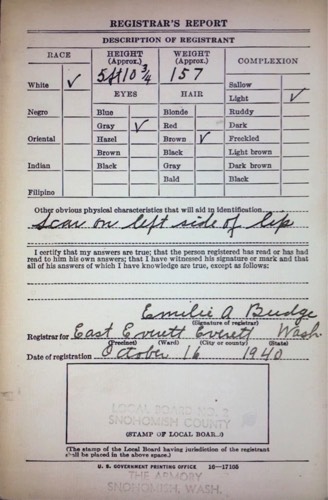 REGISTRAR'S REPORT
DESCRIPTION OF REGISTRANT
RACE HEIGHT (Approx.) WEIGHT (Approx.) COMPLEXION
5 ft 10 3/4 157
White ✓ EYES HAIR Sallow
Light ✓
Negro Blue Blonde Ruddy
Gray ✓ Red Dark
Oriental Hazel Brown ✓ Freckled
Brown Black Light brown
Indian Black Gray Dark brown
Bald Black
Filipino
Other obvious physical characteristics that will aid in identification
Scar on left side of lip
I certify that my answers are true; that the person registered has read or has had
read to him his own answers; that I have witnessed his signature or mark and that
all of his answers of which I have knowledge are true, except as follows:
Emilie A Budge
(Signature of registrar)
Registrar for East Everett Everett Wash
(Precinct) (Ward) (City or county) (State)
Date of registration October 16 1940
LOCAL BOARD NO. 2
SNOHOMISH COUNTY
(STAMP OF LOCAL BOARD)
(The stamp of the Local Board having jurisdiction of the registrant
shall be placed in the above space.)
U. S. GOVERNMENT PRINTING OFFICE 16—17105
THE ARMORY
SNOHOMISH, WASH.